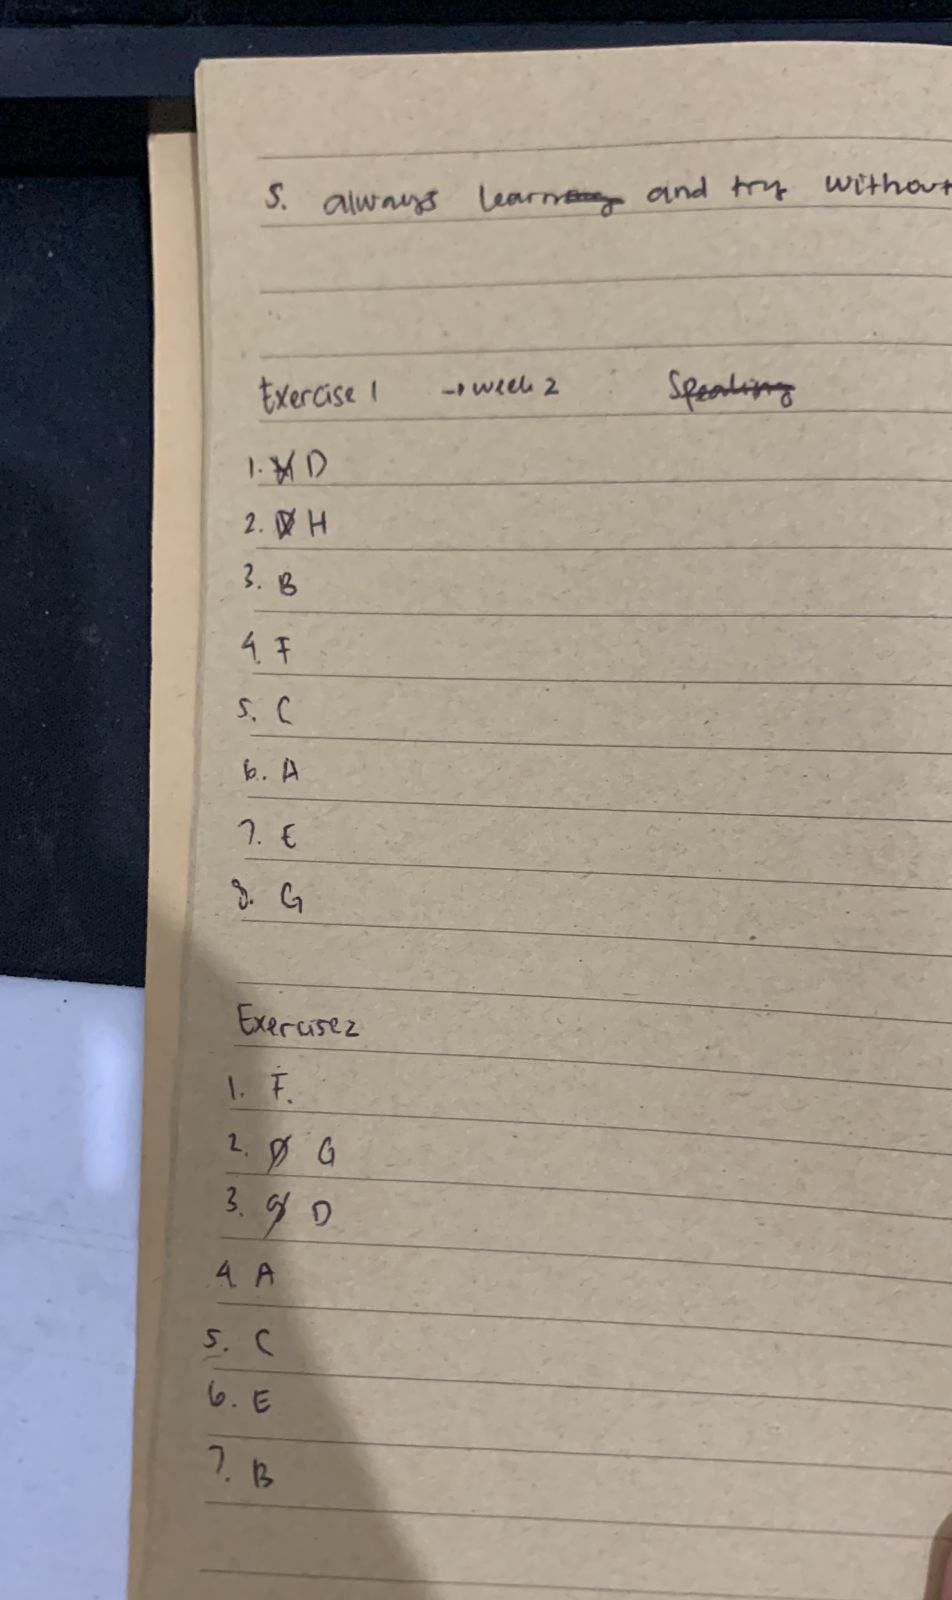 5. always learn and try without
Exercise 1 → week 2 Speaking
1. D
2. H
3. B
4. F
5. C
6. A
7. E
8. G
Exercise 2
1. F.
2. G
3. D
4. A
5. C
6. E
7. B